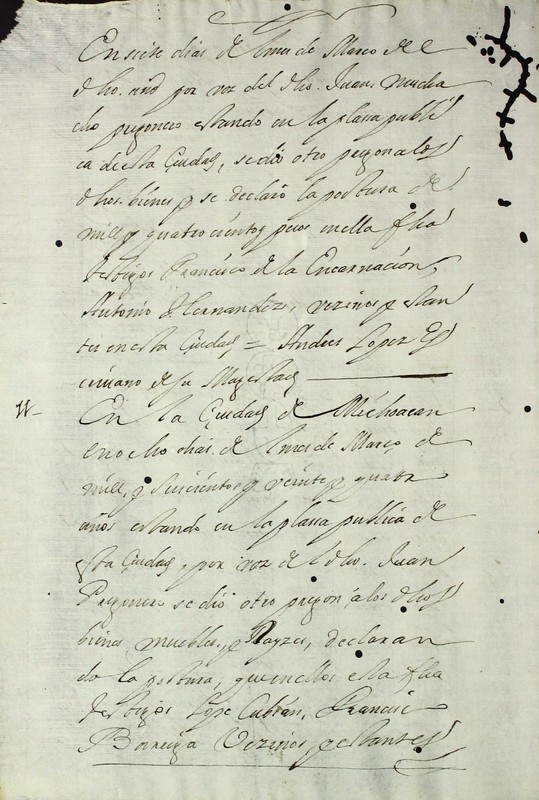 En siete dias de el mes de Março del
dho. año por voz del dho. Juan mucha
cho pregonero estando en la plassa publi
ca de esta Çiudad, se dió otro pregon a los
dhos. bienes y se declaró la postura de
mill y quatrocientos pesos en ella fha
testigos Francisco de la Encarnación,
Antonio Hernandez, vezinos y estan
tes en esta Çiudad = Andres Lopez Es
crivano de su Magestad
11-
En la Çiudad de Mechoacan
en ocho dias de el mes de Março de
mill, y seiscientos y veinte y quatro
años estando en la plassa publica de
esta Çiudad, por voz de el dho. Juan
Pregonero se dió otro pregon á los dhos
bienes muebles, y Rayzes, declaran
do la postura, que en ellos esta fha
testigos Lope Cubián, Francisco
Vezinos, y estantes